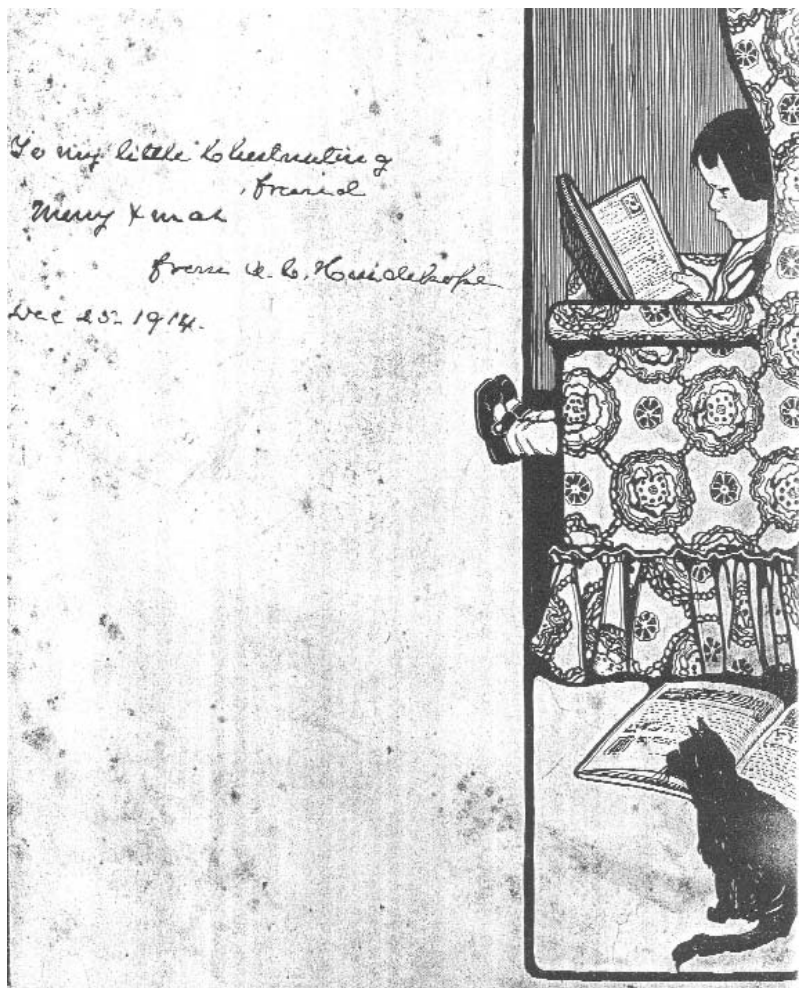 To my little Chestnuting
friend
Merry Xmas
from
Dec 25. 1914.